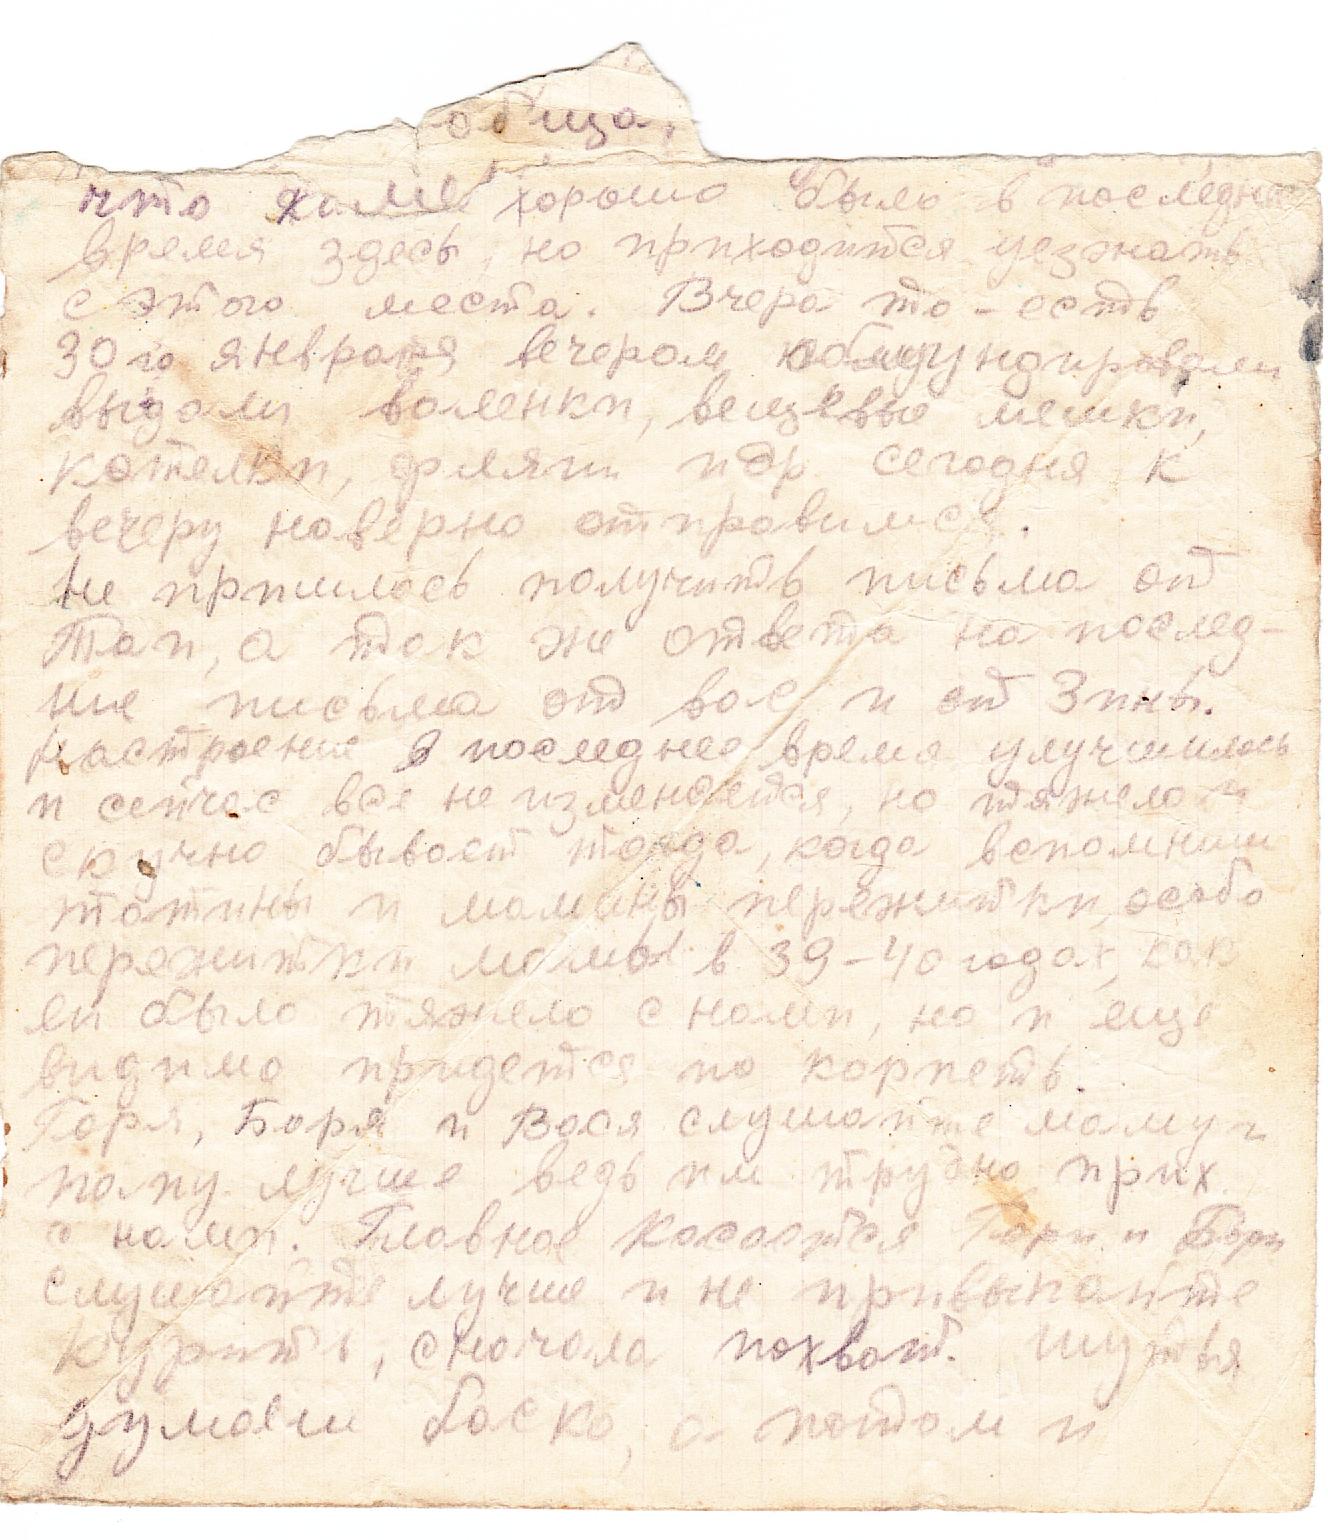 общо,
что хоме хорошо было в последнее
время здесь, но приходится уезжать
с этого места. Вчера то-есть
30го января вечером обмундировали
выдали валенки, вещевые мешки,
котелки, фляги идр сегодня к
вечеру наверно отправимся.
Не пришлось получить письма от
Таи, а так же ответа на послед-
ние письма от вас и от Зины.
Настроение в последнее время улучшилось
и сейчас все не изменяется, но тяжело и
скучно бывает тогда, когда вспомниш
тятины и мамины пережитки, особо
пережитки мамы в 39-40 годах, как
ей было тяжело с нами, но и еще
видимо придется по корпеть.
Горя, Боря и Вася слушайте маму и
папу лучше ведь им трудно прих.
с нами. Главное касается Гори и Бори
слушайте лучше и не привыкайте
курить, сначала похват. шутя
думаеш баско, а потом и